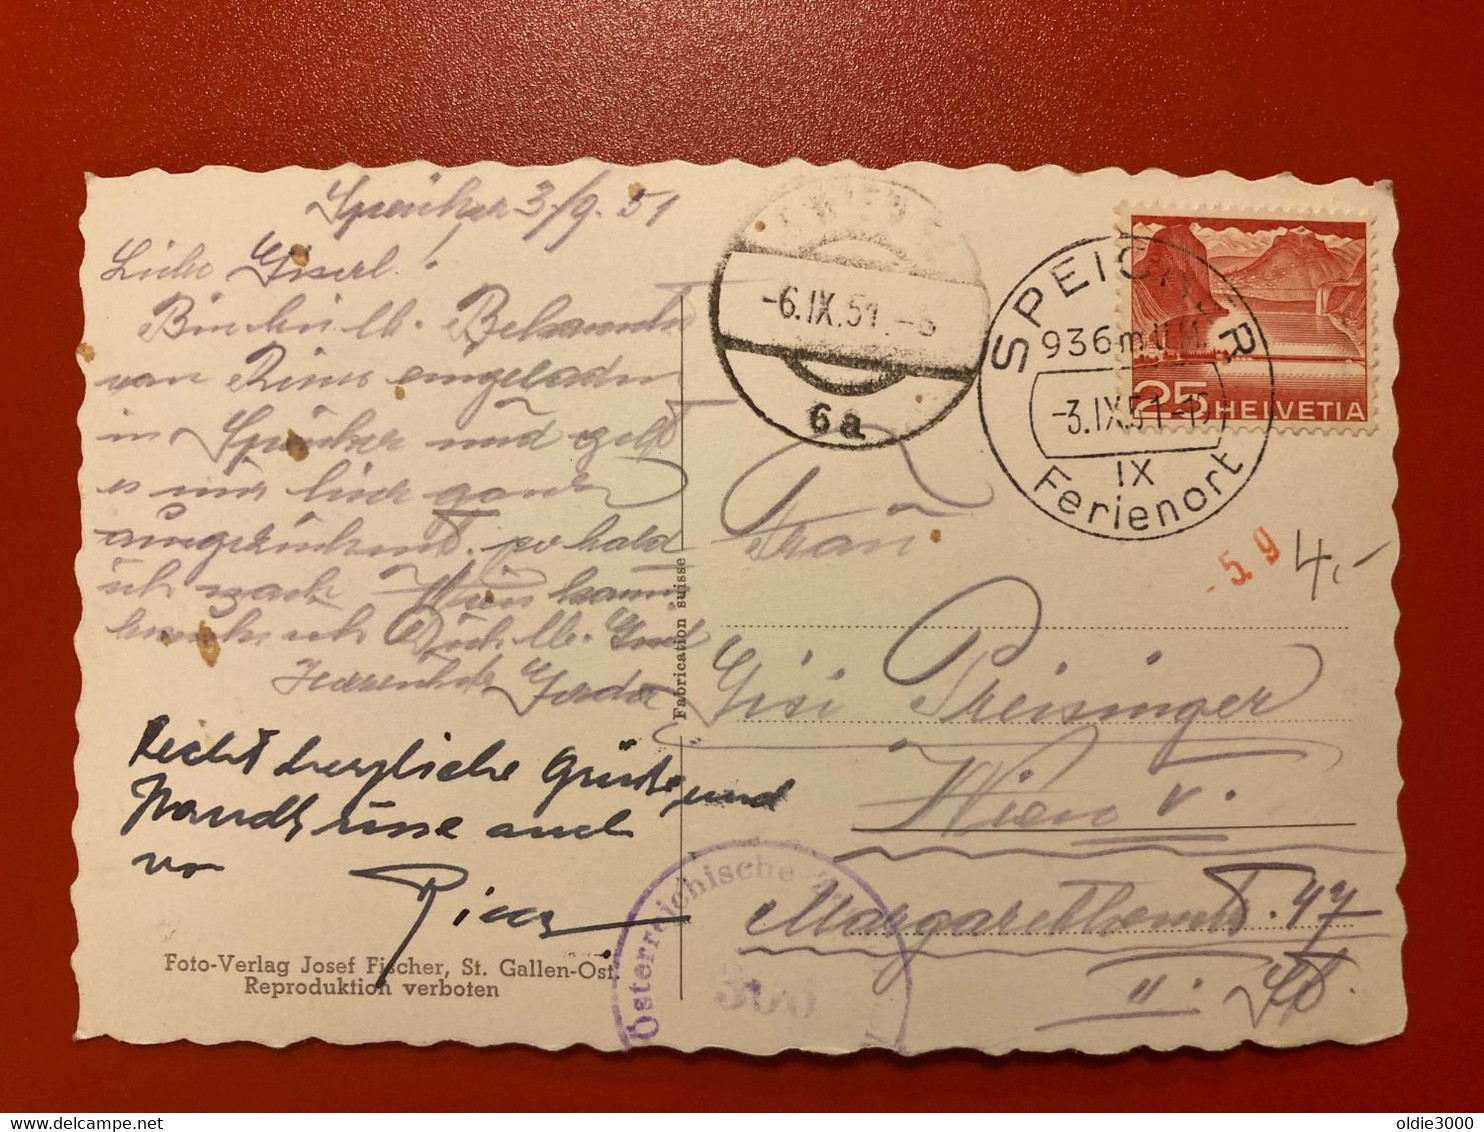 Speicher 3./9. 51
Liebe Giserl!
Bin bei lb. Bekannte
von Rias eingeladen
in Speicher und gefällt
es mir hier ganz
ausgezeichnet. so bald
ich nach Wien komme
besuche ich Dich lb. Gisi
Gerda
Recht herzliche Grüsse und
Handküsse auch
von
Foto-Verlag Josef Fischer, St. Gallen-Ost.
Reproduktion verboten
Fabrication suisse
WIEN
-6.IX.51.-
6a
SPEICHER
936 m ü.M.
-3.IX.51-15
IX
Ferienort
25 HELVETIA
5.9
4,-
Frau
Gisi Preisinger
Wien V.
Margarethenstr. 47
II. St.
Österreichische
oldie3000